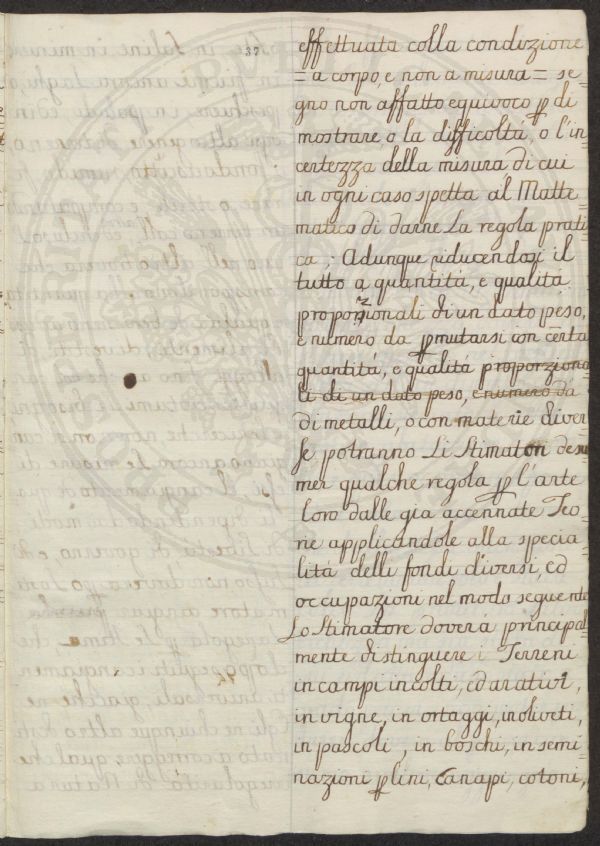 37
effettuata colla condizione
= a corpo, e non a misura = se-
gno non affatto equivoco p di
mostrare, o la difficoltà, o l'in
certezza della misura, di cui
in ogni caso spetta al Matte-
matico di darne La regola prati
ca; Adunque riducendosi il
tutto a quantità, e qualità
proporzionali di un dato peso,
e numero da pmutarsi con certa
quantità, e qualità proporziona
li di un dato peso, e numero da
di metalli, o con materie diver
se potranno Li Stimatori desu
mer qualche regola p l'arte
loro dalle gia accennate Teo
rie applicandole alla specia
lità delli fondi diversi, ed
occupazioni nel modo seguente
Lo Stimatore doverà principal
mente distinguere i Terreni
in campi incolti, ed arativi,
in vigne, in ortaggi, in oliveti,
in pascoli, in boschi, in semi
nazioni p lini, Canapi, cotoni,